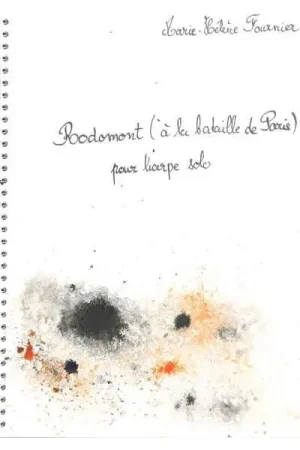 Marie-Hélène Fournier
Rodomont (à la bataille de Paris)
pour harpe solo